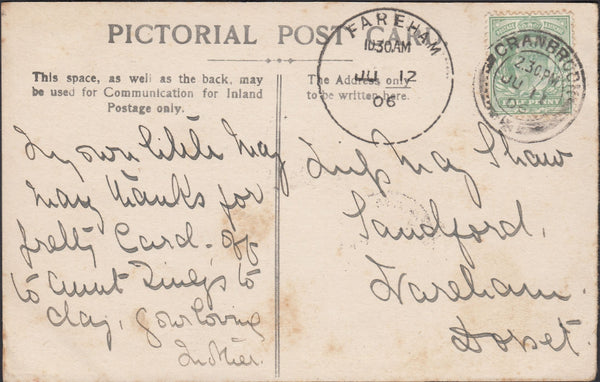 PICTORIAL POST CARD
This space, as well as the back, may
be used for Communication for Inland
Postage only.
The Address only
to be written here.
FAREHAM
10.30AM
JU 12
06
CRANBROOK
2.30PM
JU 11
HALFPENNY
My own little May
Many thanks for
pretty Card. off
to Aunt to
day, Your loving
Mother.
Miss May Shaw
Sandford,
Wareham.
Dorset.